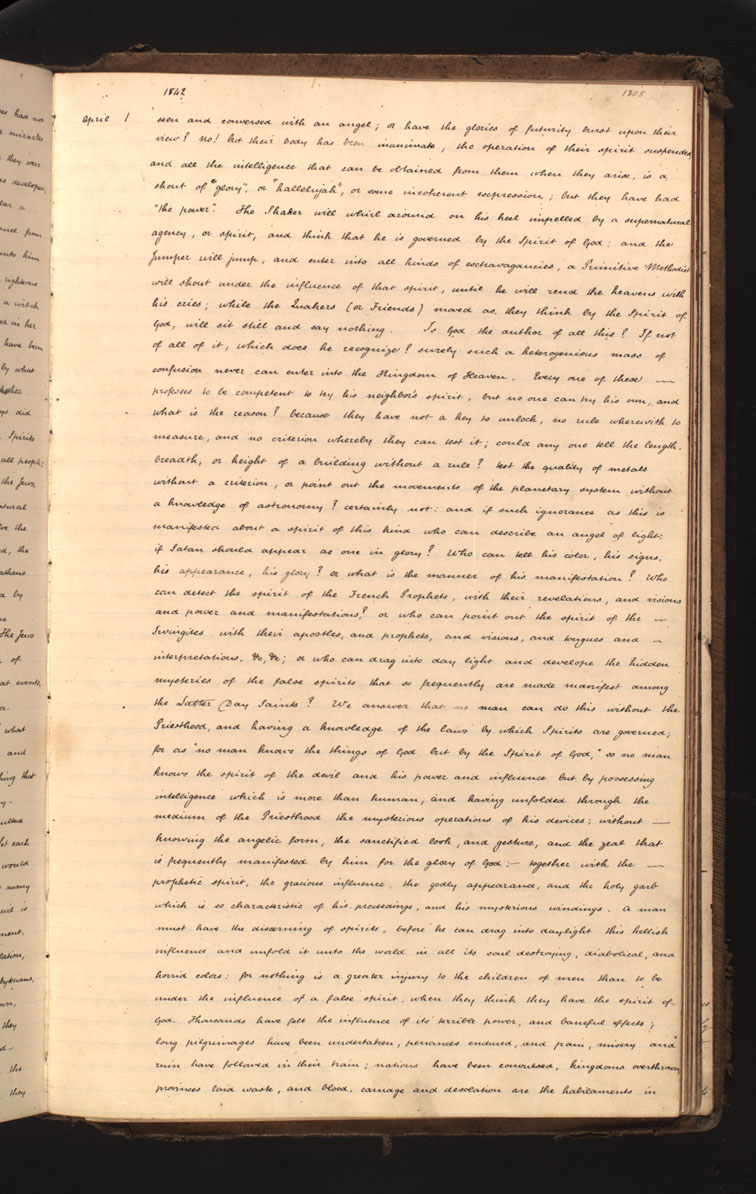 1842
1305
April 1 seen and conversed with an angel; or have the glories of futurity burst upon their
view? no! but their body has been inanimate, the operation of their spirit suspended,
and all the intelligence that can be obtained from them when they arise, is a
shout of "glory", or "hallelujah", or some incoherent expression; but they have had
"the power". The Shaker will whirl around on his heel impelled by a supernatural
agency, or spirit, and think that he is governed by the Spirit of God: and the
Jumper will jump, and enter into all kinds of extravagancies, a Primitive Methodist
will shout under the influence of that spirit, until he will rend the heavens with
his cries; while the Quakers (or Friends) moved as they think by the Spirit of
God, will sit still and say nothing. Is God the author of all this? If not
of all of it, which does he recognize? surely such a heterogenious mass of
confusion never can enter into the Kingdom of Heaven. Every one of these —
professes to be competent to try his neighbors spirit, but no one can try his own, and
what is the reason? because they have not a key to unlock, no rule wherewith to
measure, and no criterion whereby they can test it; could any one tell the length,
breadth, or height of a building without a rule? test the quality of metals
without a criterion, or point out the movements of the planetary system without
a knowledge of astronomy? certainly not: and if such ignorance as this is
manifested about a spirit of this kind who can describe an angel of light:
if Satan should appear as one in glory? Who can tell his color, his signs,
his appearance, his glory? or what is the manner of his manifestation? Who
can detect the spirit of the French Prophets, with their revelations, and visions
and power and manifestations? or who can point out the spirit of the —
Irvingites with their apostles, and prophets, and visions, and tongues and —
interpretations, &c, &c; or who can drag into day light and develope the hidden
mysteries of the false spirits that so frequently are made manifest among
the Latter Day Saints? We answer that no man can do this without the
Priesthood, and having a knowledge of the laws by which Spirits are governed;
for as "no man knows the things of God but by the Spirit of God," so no man
knows the spirit of the devil and his power and influence but by possessing
intelligence which is more than human, and having unfolded through the
medium of the Priesthood the mysterious operations of his devices; without —
knowing the angelic form, the sanctified look, and gesture, and the zeal that
is frequently manifested by him for the glory of God:— together with the —
prophetic spirit, the gracious influence, the godly appearance, and the holy garb
which is so characteristic of his proceedings, and his mysterious windings. A man
must have the discerning of spirits, before he can drag into daylight this hellish
influence and unfold it unto the world in all its soul destroying, diabolical, and
horrid colors: for nothing is a greater injury to the children of men than to be
under the influence of a false spirit, when they think they have the spirit of
God. Thousands have felt the influence of its terrible power, and baneful effects;
long pilgrimages have been undertaken, penances endured, and pain, misery and
ruin have followed in their train; nations have been convulsed, kingdoms overthrown
provinces laid waste, and blood, carnage and desolation are the habilaments in